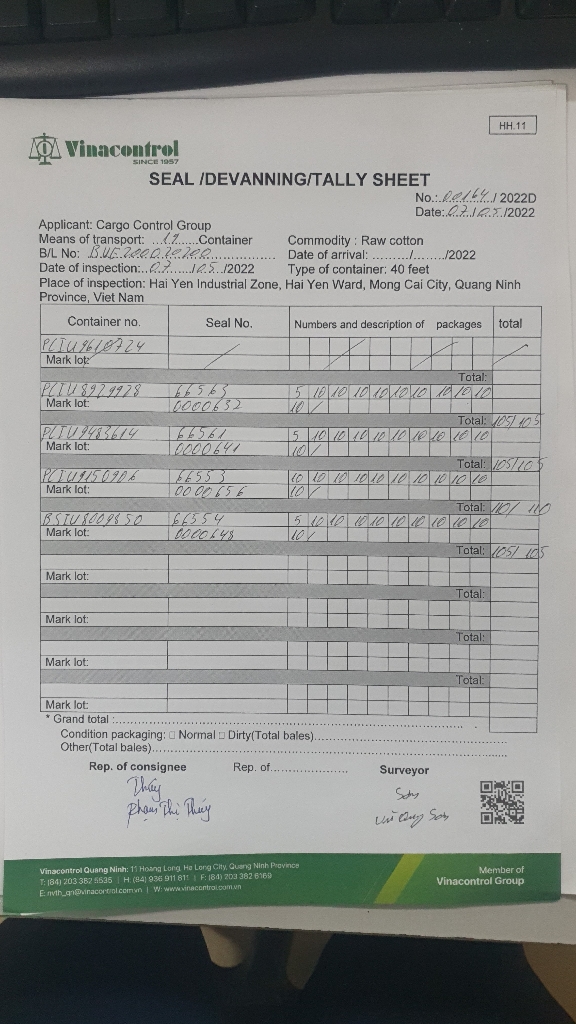 HH.11
Vinacontrol
SINCE 1957
SEAL /DEVANNING/TALLY SHEET
No.: 00164 / 2022D
Date: 07 / 05 /2022
Applicant: Cargo Control Group
Means of transport: ...17......Container
Commodity : Raw cotton
B/L No:
Date of arrival: ........./........./2022
Date of inspection: 07 / 05 /2022
Type of container: 40 feet
Place of inspection: Hai Yen Industrial Zone, Hai Yen Ward, Mong Cai City, Quang Ninh
Province, Viet Nam
Container no. Seal No. Numbers and description of packages total
PCIU9610724
Mark lot:
Total:
PCIU8929928 66563 5 10 10 10 10 10 10 10 10 10
Mark lot: 0000632 10 /
Total: 105/ 105
PCIU9483614 66561 5 10 10 10 10 10 10 10 10 10
Mark lot: 0000641 10 /
Total: 105/ 105
PCIU9150906 66553 10 10 10 10 10 10 10 10 10 10
Mark lot: 0000656 10 /
Total: 110/ 110
BSIU8009850 66554 5 10 10 10 10 10 10 10 10 10
Mark lot: 0000648 10 /
Total: 105/ 105
Mark lot:
Total:
Mark lot:
Total:
Mark lot:
Total:
Mark lot:
* Grand total :
Condition packaging: □ Normal □ Dirty(Total bales)
Other(Total bales)
Rep. of consignee Rep. of Surveyor
Thúy
Phạm Thị Thúy
Sơn
Sơn
Vinacontrol Quang Ninh: 11 Hoang Long, Ha Long City, Quang Ninh Province
T: (84) 203 382 5535 | H: (84) 936 911 811 | F: (84) 203 382 6169
E: nvth_qn@vinacontrol.com.vn | W: www.vinacontrol.com.vn
Member of
Vinacontrol Group